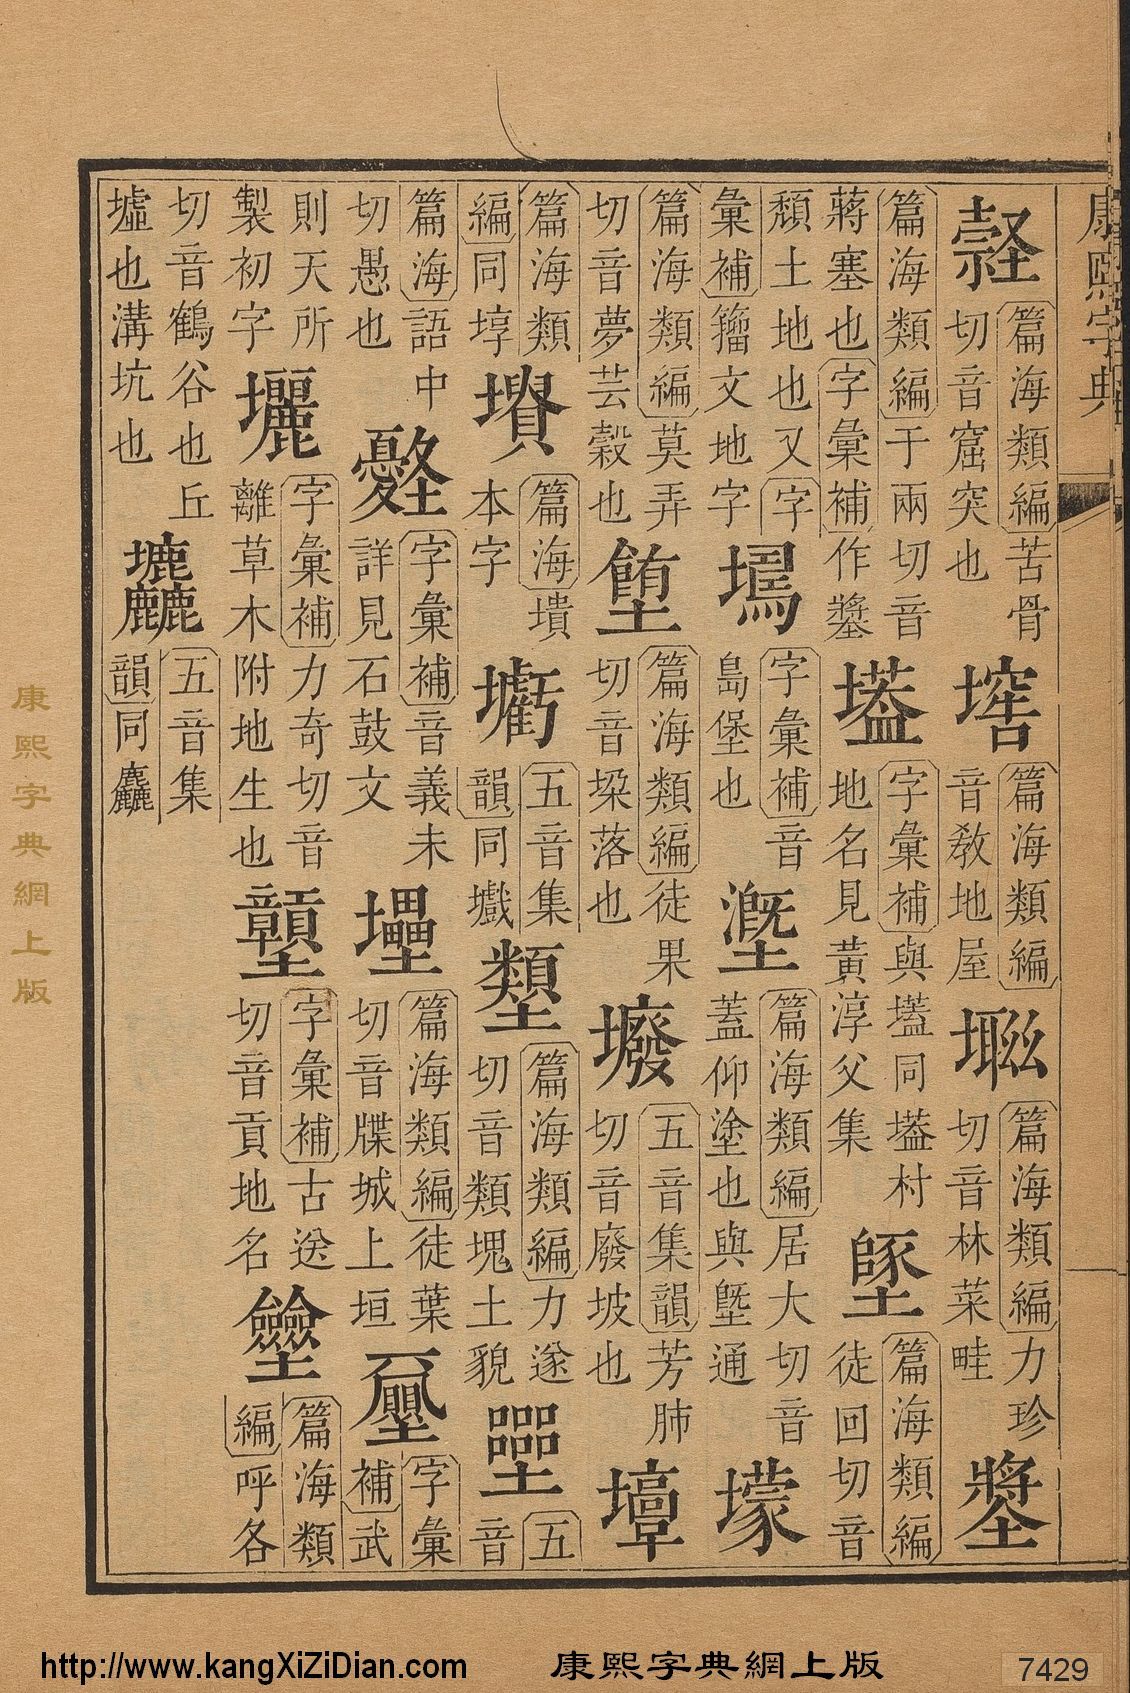 康熙字典
篇海類編苦骨
切音窟突也
篇海類編
音教地屋
篇海類編力珍
切音林菜畦
篇海類編于兩切音
蔣塞也字彙補作墏
字彙補與壒同壒村
地名見黃淳父集
篇海類編
徒回切音
頽土地也又字
彙補籀文地字
字彙補音
島堡也
篇海類編居大切音
蓋仰塗也與墍通
壕
篇海類編莫弄
切音夢芸穀也
篇海類編徒果
切音垛落也
五音集韻芳肺
切音廢坡也
篇海類
編同埻
篇海墳
本字
五音集
韻同壏
篇海類編力遂
切音類塊土貌
五音
篇海語中
切愚也
字彙補音義未
詳見石鼓文
篇海類編徒葉
切音牒城上垣
字彙
補武
則天所
製初字
字彙補力奇切音
離草木附地生也
字彙補古送
切音貢地名
篇海類
編呼各
切音鶴谷也丘
墟也溝坑也
五音集
韻同麤
康熙字典網上版
http://www.kangXiZiDian.com 康熙字典網上版 7429